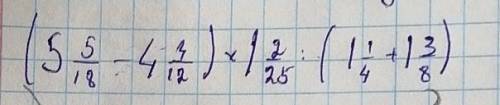 (5 5/18 - 4 7/12) × 1 2/25 : (1 1/4 + 1 3/8)